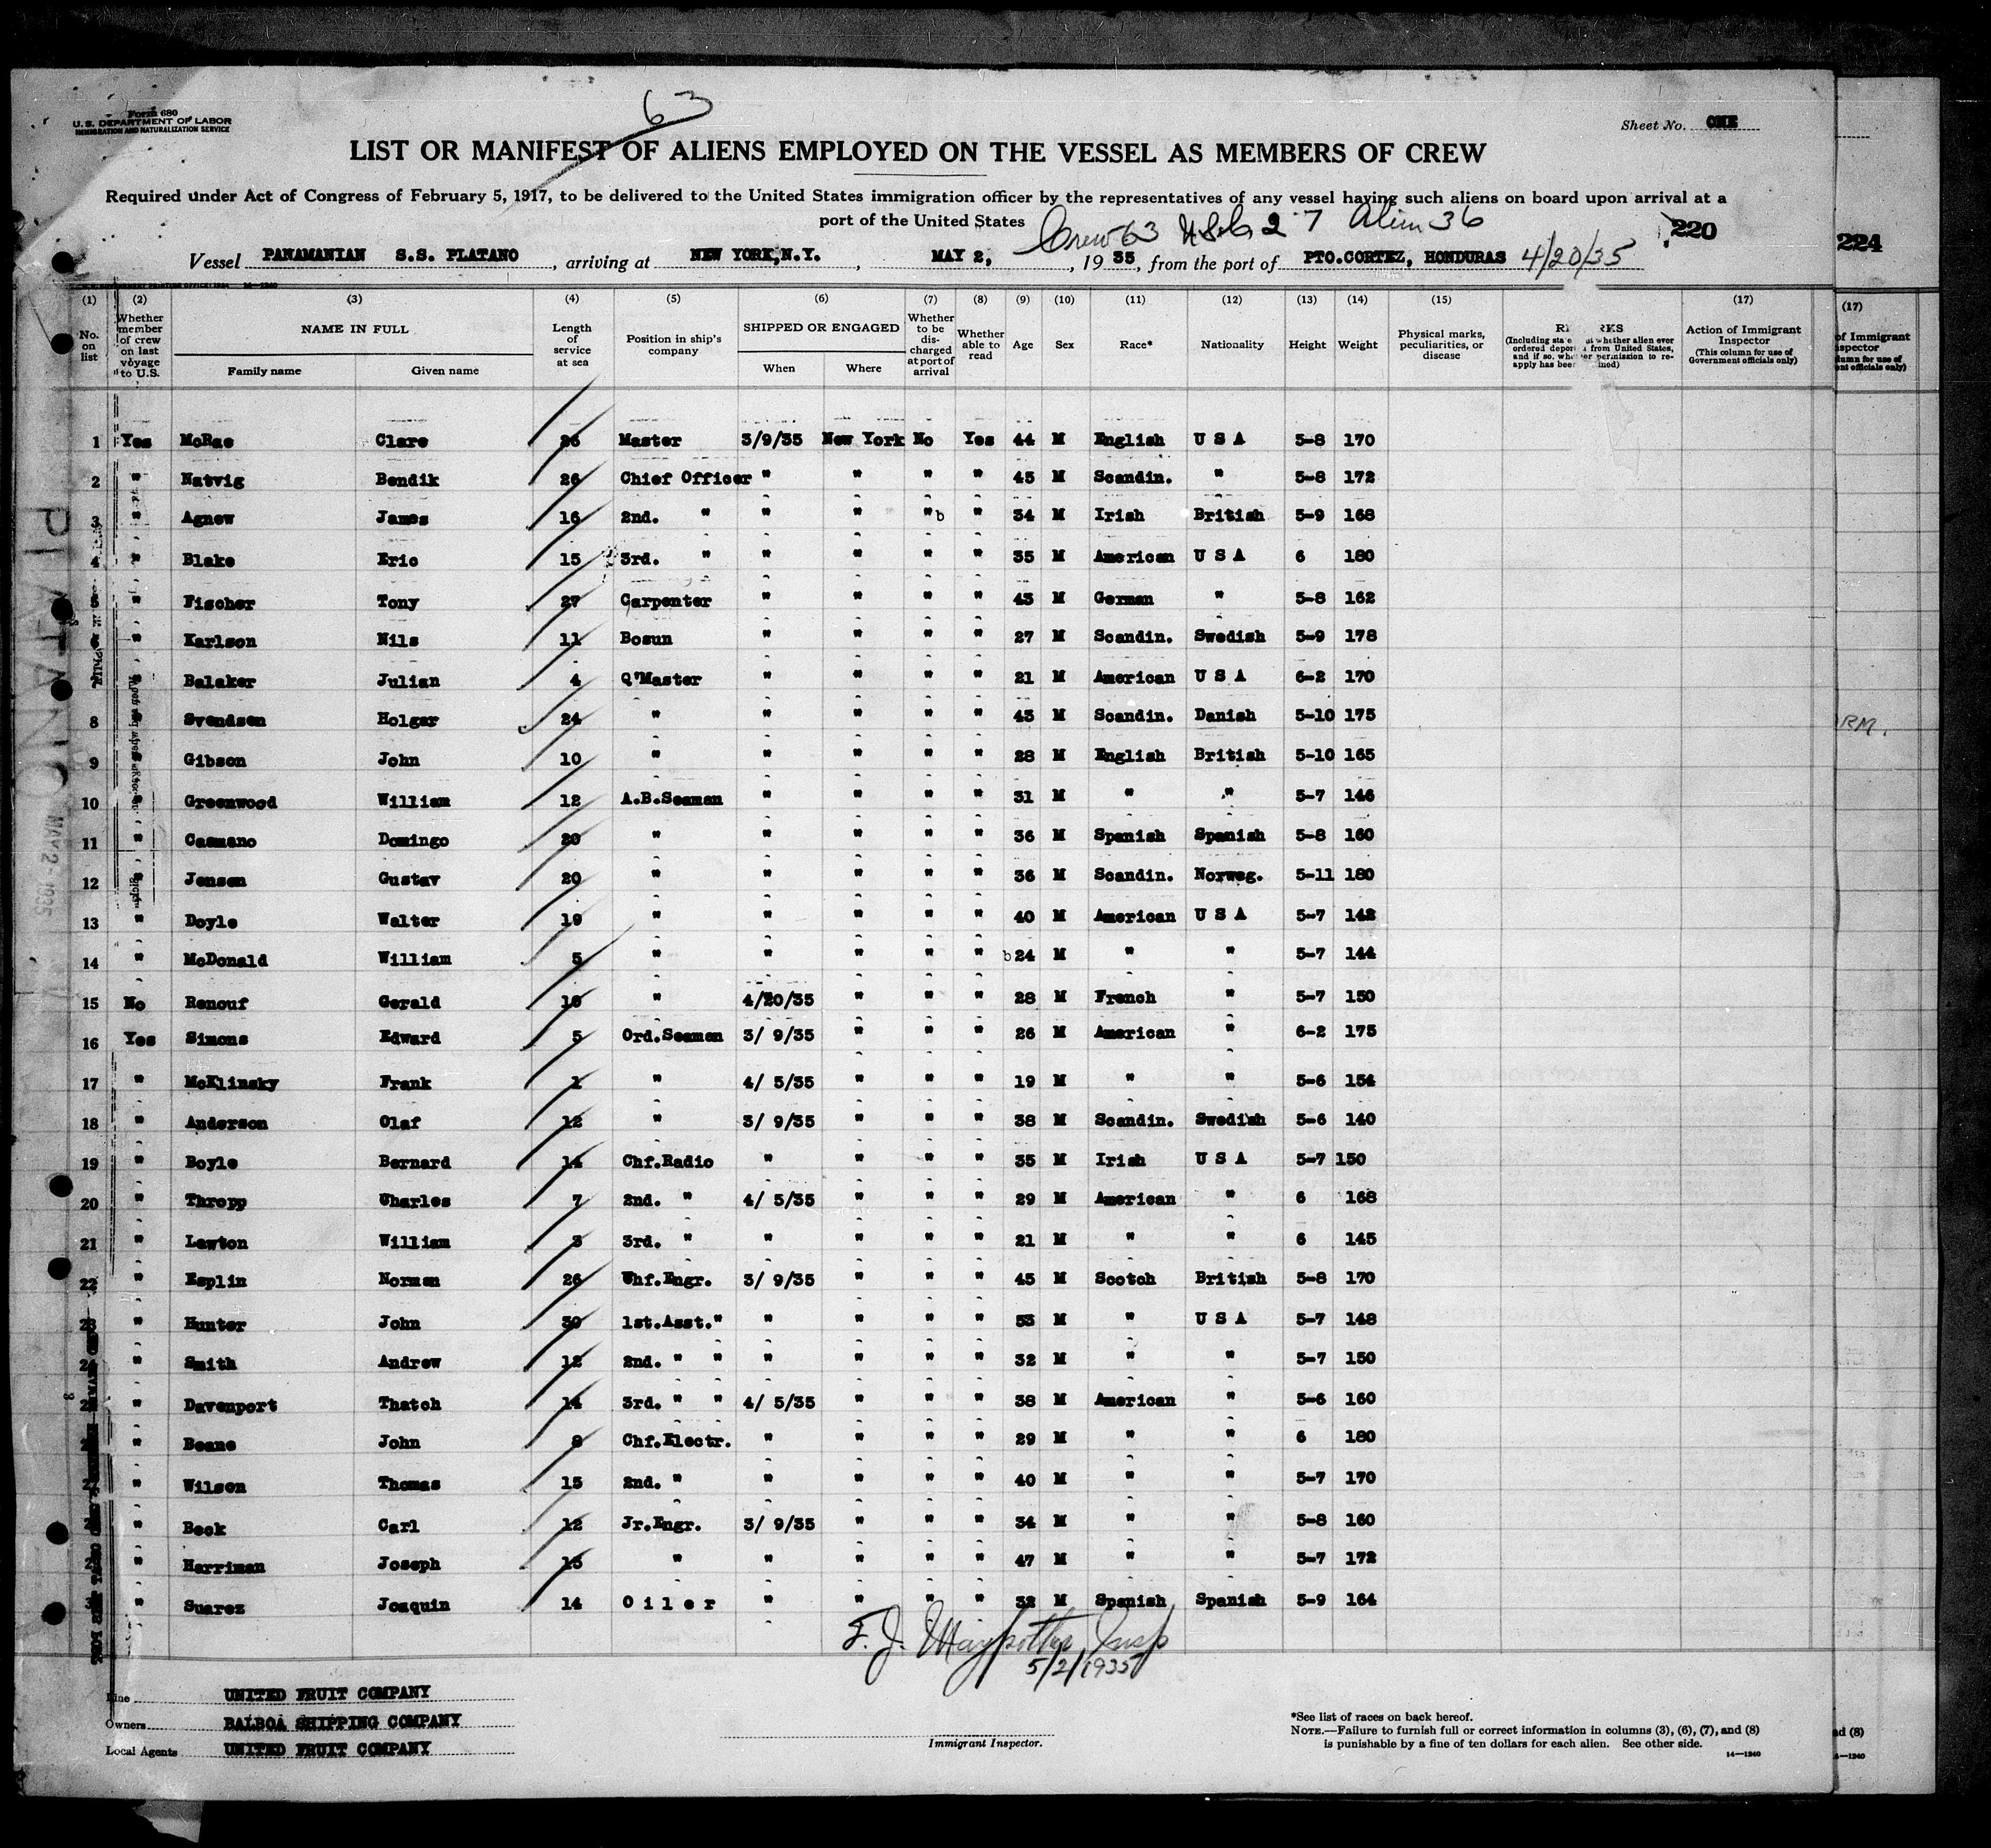 63
Form 680
U. S. DEPARTMENT OF LABOR
IMMIGRATION AND NATURALIZATION SERVICE
Sheet No. ONE
LIST OR MANIFEST OF ALIENS EMPLOYED ON THE VESSEL AS MEMBERS OF CREW
Required under Act of Congress of February 5, 1917, to be delivered to the United States immigration officer by the representatives of any vessel having such aliens on board upon arrival at a
port of the United States
Crew 63 USC 27 Alien 36
220
224
Vessel PANAMANIAN S.S. PLATANO, arriving at NEW YORK,N.Y., MAY 2, 1935, from the port of PTO.CORTEZ, HONDURAS 4/20/35
(1) (2) (3) (4) (5) (6) (7) (8) (9) (10) (11) (12) (13) (14) (15) (17) (17)
No. on list
Whether member of crew on last voyage to U.S.
NAME IN FULL
Family name Given name
Length of service at sea
Position in ship's company
SHIPPED OR ENGAGED
When Where
Whether to be discharged at port of arrival
Whether able to read
Age Sex Race* Nationality Height Weight
Physical marks, peculiarities, or disease
Action of Immigrant Inspector
(This column for use of Government officials only)
1 Yes McRae Clare 26 Master 3/9/35 New York No Yes 44 M English U S A 5-8 170
2 " Natvig Bendik 26 Chief Officer " " " " 45 M Scandin. " 5-8 172
3 " Agnew James 16 2nd. " " " " " 34 M Irish British 5-9 168
4 " Blake Eric 15 3rd. " " " " " 35 M American U S A 6 180
5 " Fischer Tony 27 Carpenter " " " " 43 M German " 5-8 162
6 " Karlson Nils 11 Bosun " " " " 27 M Scandin. Swedish 5-9 178
7 " Balaker Julian 4 Q'Master " " " " 21 M American U S A 6-2 170
8 " Svendsen Holger 24 " " " " " 43 M Scandin. Danish 5-10 175
9 " Gibson John 10 " " " " " 28 M English British 5-10 165
10 " Greenwood William 12 A.B.Seaman " " " " 31 M " " 5-7 146
11 " Casmano Domingo 20 " " " " " 36 M Spanish Spanish 5-8 160
12 " Jensen Gustav 20 " " " " " 36 M Scandin. Norweg. 5-11 180
13 " Doyle Walter 19 " " " " " 40 M American U S A 5-7 142
14 " McDonald William 5 " " " " " 24 M " " 5-7 144
15 No Renouf Gerald 10 " 4/20/35 " " " 28 M French " 5-7 150
16 Yes Simons Edward 5 Ord.Seaman 3/ 9/35 " " " 26 M American " 6-2 175
17 " McKlinsky Frank 1 " 4/ 5/35 " " " 19 M " " 5-6 154
18 " Anderson Olaf 12 " 3/ 9/35 " " " 38 M Scandin. Swedish 5-6 140
19 " Boyle Bernard 14 Chf.Radio " " " " 35 M Irish U S A 5-7 150
20 " Thropp Charles 7 2nd. " 4/ 5/35 " " " 29 M American " 6 168
21 " Lawton William 3 3rd. " " " " " 21 M " " 6 145
22 " Esplin Norman 26 Chf.Engr. 3/ 9/35 " " " 45 M Scotch British 5-8 170
23 " Hunter John 30 1st.Asst." " " " " 53 M " U S A 5-7 148
24 " Smith Andrew 12 2nd. " " " " " " 32 M " " 5-7 150
2 " Davenport Thatch 14 3rd. " " 4/ 5/35 " " " 38 M American " 5-6 160
2 " Beane John 8 Chf.Electr. " " " " 29 M " " 6 180
2 " Wilson Thomas 15 2nd. " " " " " 40 M " " 5-7 170
2 " Beck Carl 12 Jr.Engr. 3/ 9/35 " " " 34 M " " 5-8 160
2 " Harriman Joseph 15 " " " " " 47 M " " 5-7 172
3 " Suarez Joaquin 14 O i l e r " " " " 32 M Spanish Spanish 5-9 164
5/2/1935
Line UNITED FRUIT COMPANY
Owners BALBOA SHIPPING COMPANY
Local Agents UNITED FRUIT COMPANY
Immigrant Inspector.
*See list of races on back hereof.
NOTE.—Failure to furnish full or correct information in columns (3), (6), (7), and (8)
is punishable by a fine of ten dollars for each alien. See other side.
14—1240
PLATANO MAY 2 - 1935